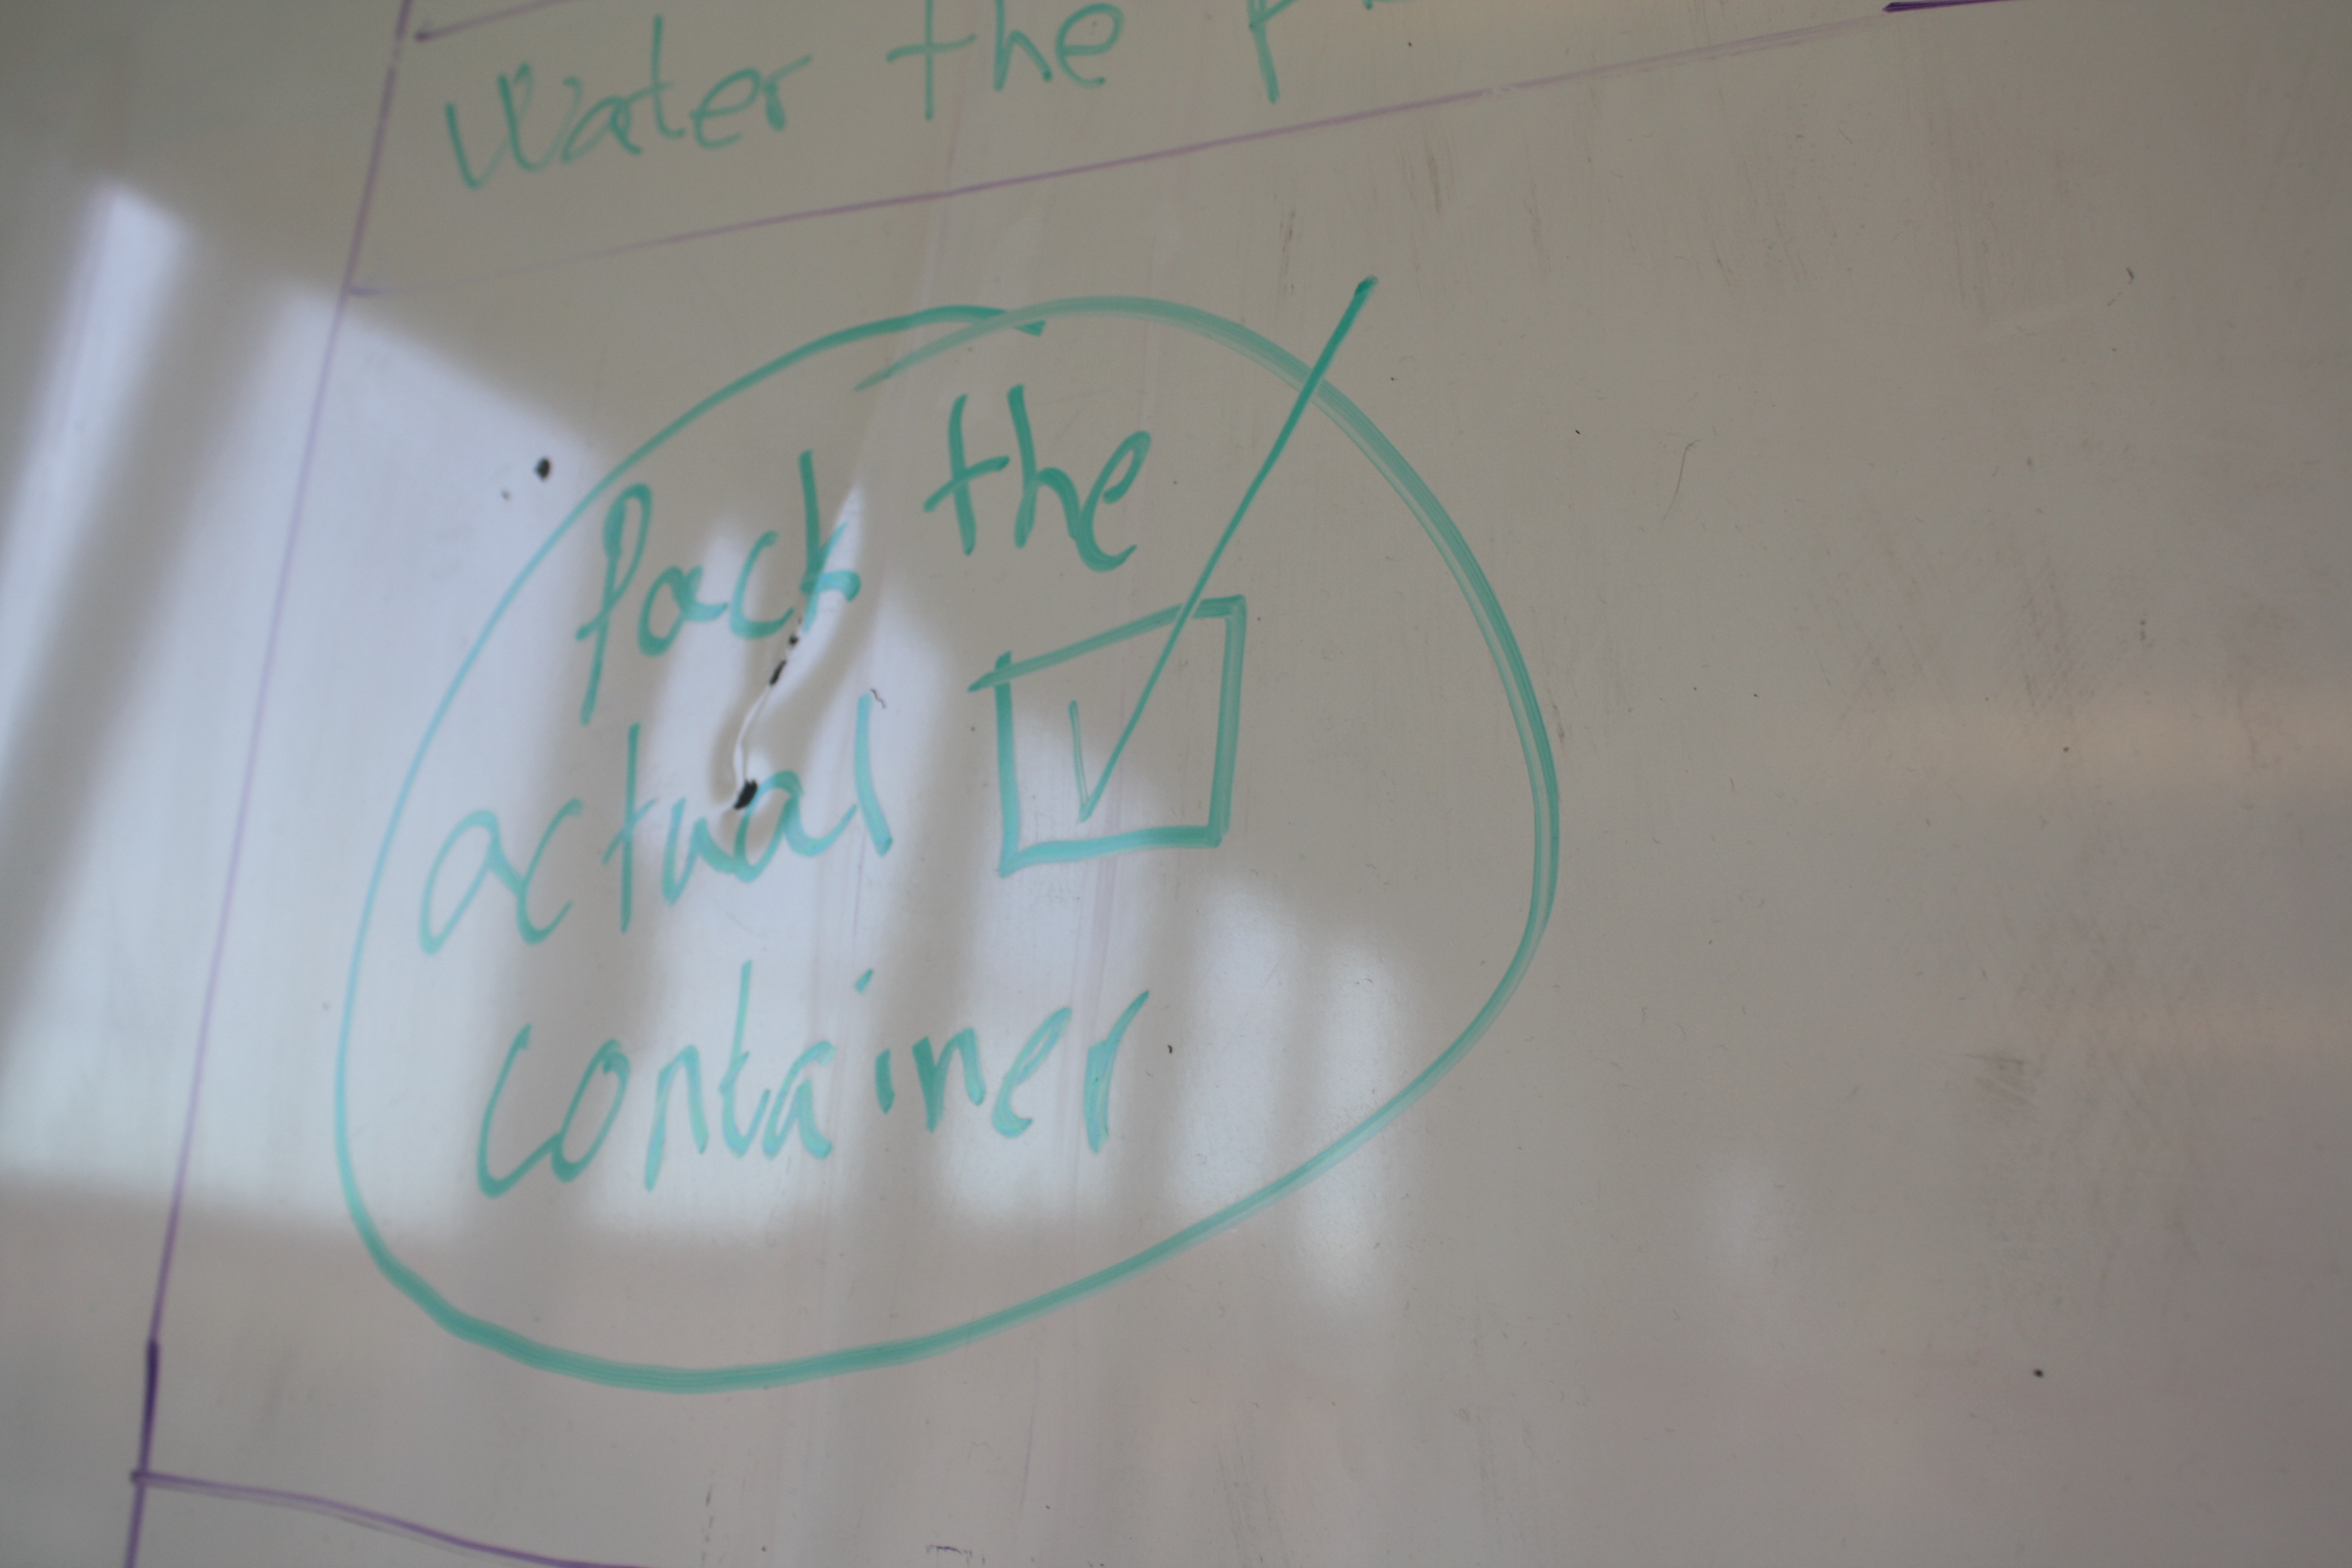 Water the
Pack the
actual
container